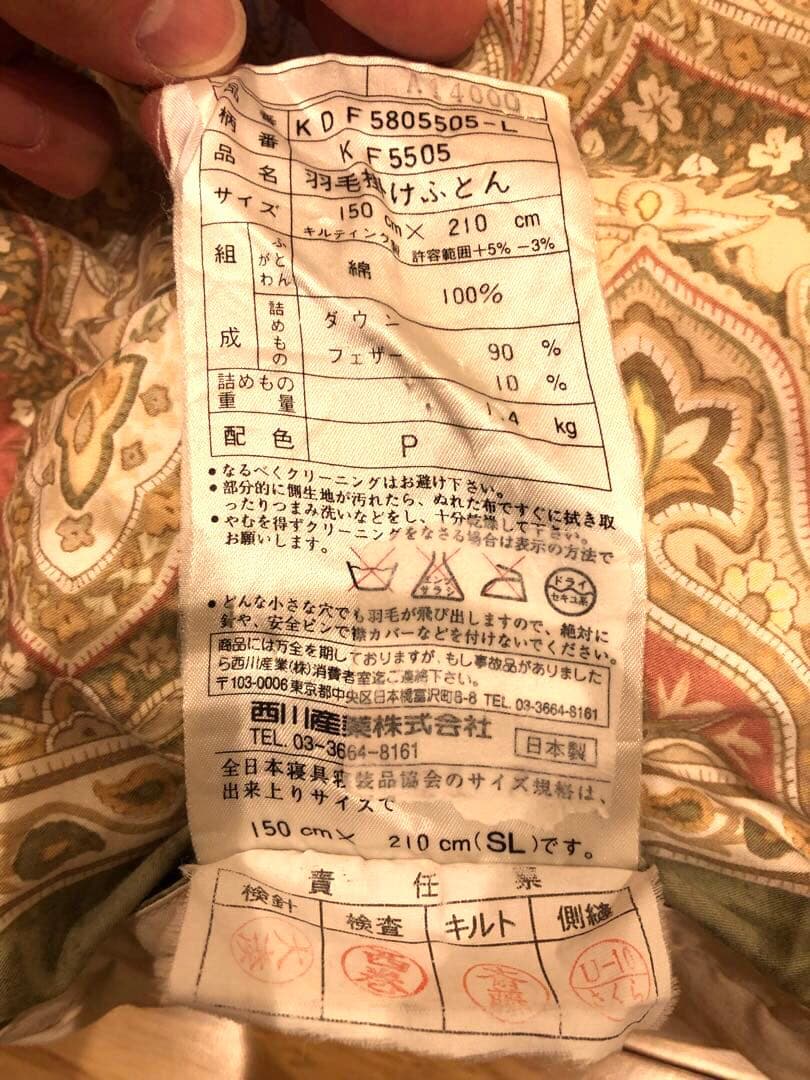 A14000
柄番 KDF5805505-L
品番 KF5505
品名 羽毛掛けふとん
サイズ 150 cm × 210 cm
キルティング製 許容範囲+5% -3%
組成 ふとんがわ 綿 100%
詰めもの ダウン 90 %
フェザー 10 %
詰めもの重量 1.4 kg
配色 P
●なるべくクリーニングはお避け下さい。
●部分的に側生地が汚れたら、ぬれた布ですぐに拭き取
ったりつまみ洗いなどをし、十分乾燥して下さい。
●やむを得ずクリーニングをなさる場合は表示の方法で
お願いします。
エンソサラシ
ドライ
セキユ系
●どんな小さな穴でも羽毛が飛び出しますので、絶対に
針や、安全ピンで襟カバーなどを付けないでください。
商品には万全を期しておりますが、もし事故品がありました
ら西川産業(株)消費者室迄ご連絡下さい。
〒103-0006東京都中央区日本橋富沢町8-8 TEL. 03-3664-8161
西川産業株式会社
TEL. 03-3664-8161 日本製
全日本寝具寝装品協会のサイズ規格は、
出来上りサイズで
150 cm× 210 cm(SL)です。
責任票
検針 検査 キルト 側縫
西巻 斉藤 U-10
さくら